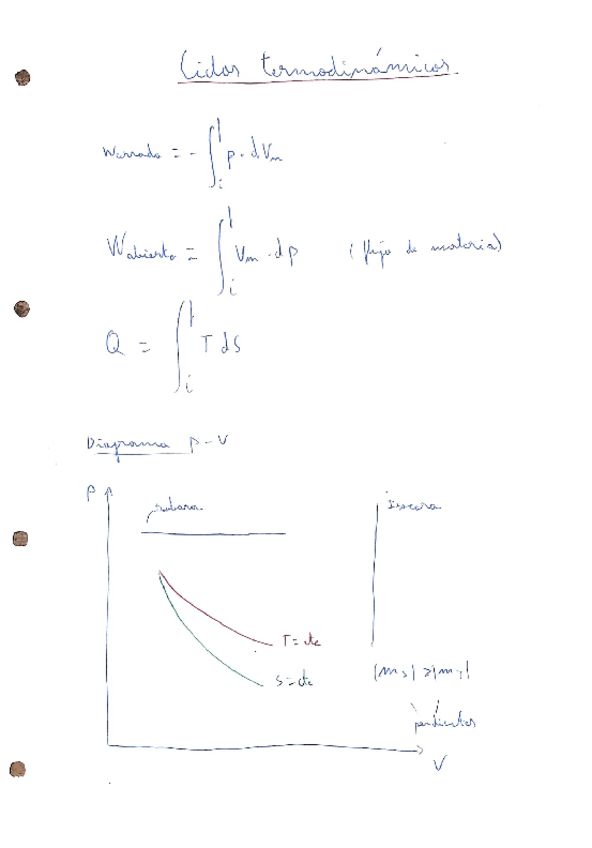 Ciclos termodinámicos
Wcerrado = - ∫ᵢᶠ p · dVm
Wabierto = ∫ᵢᶠ Vm · dp (flujo de materia)
Q = ∫ᵢᶠ T dS
Diagrama p-V
P
isobara
isocora
T = cte
S = cte
|ms| > |mT|
pendientes
V